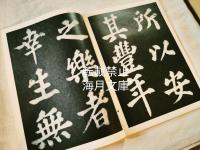 所以安
其豐年
之樂者
幸生無
転載禁止
海月文庫